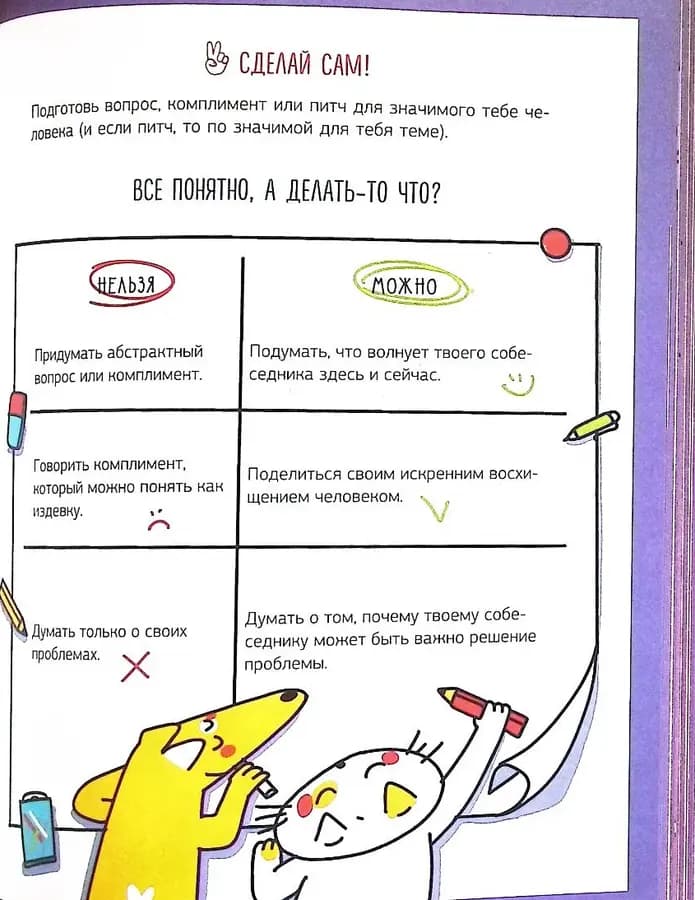 СДЕЛАЙ САМ!
Подготовь вопрос, комплимент или питч для значимого тебе че-
ловека (и если питч, то по значимой для тебя теме).
ВСЕ ПОНЯТНО, А ДЕЛАТЬ-ТО ЧТО?
НЕЛЬЗЯ
МОЖНО
Придумать абстрактный
вопрос или комплимент.
Подумать, что волнует твоего собе-
седника здесь и сейчас.
Говорить комплимент,
который можно понять как
издевку.
Поделиться своим искренним восхи-
щением человеком.
Думать только о своих
проблемах.
Думать о том, почему твоему собе-
седнику может быть важно решение
проблемы.